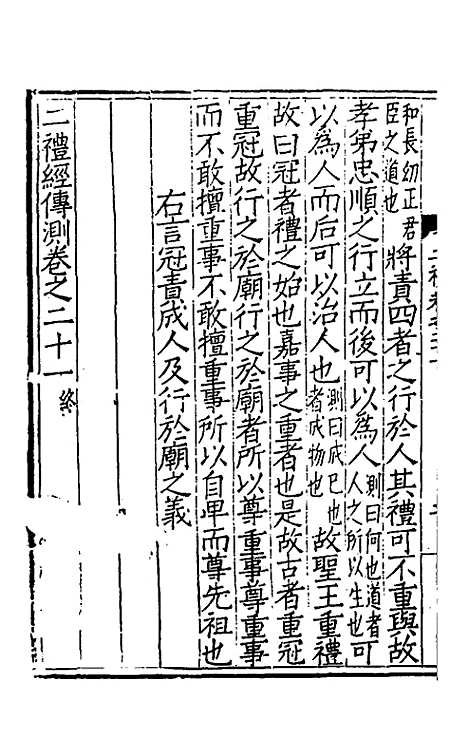 和長幼正君臣之道也將責四者之行於人其禮可不重與故
孝弟忠順之行立而後可以為人測曰何也道者人之所以生也可
以為人而后可以治人也測曰成巳也者成物也故聖王重禮
故曰冠者禮之始也嘉事之重者也是故古者重冠
重冠故行之於廟行之於廟者所以尊重事尊重事
而不敢擅重事不敢擅重事所以自卑而尊先祖也
右言冠責成人及行於廟之義
二禮經傳測卷之二十一終